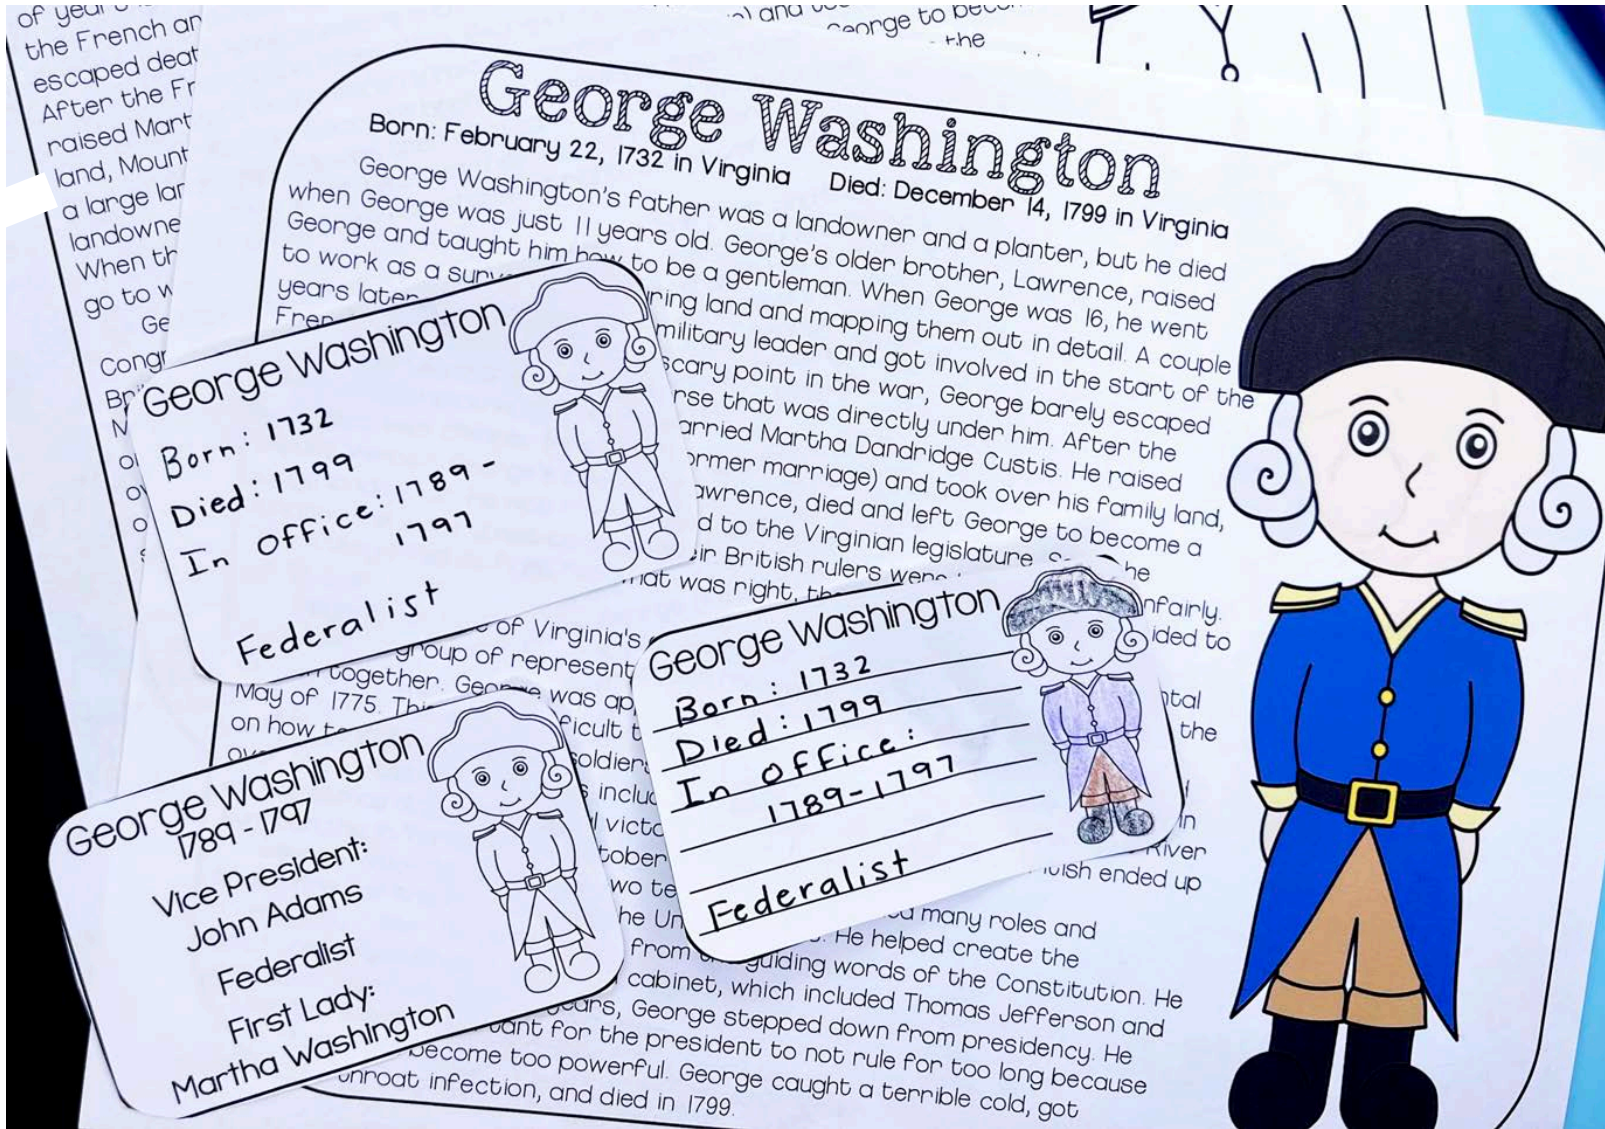 of year
the French an
escaped deat
After the Fr
raised Mart
land, Mount
a large lar
landowne
When th
go to w
Ge
Congr
and
George to beco
the
George Washington
Born: February 22, 1732 in Virginia Died: December 14, 1799 in Virginia
George Washington's father was a landowner and a planter, but he died
when George was just 11 years old. George's older brother, Lawrence, raised
George and taught him how to be a gentleman. When George was 16, he went
to work as a surv ring land and mapping them out in detail. A couple
years later military leader and got involved in the start of the
Fren scary point in the war, George barely escaped
rse that was directly under him. After the
arried Martha Dandridge Custis. He raised
ormer marriage) and took over his family land,
awrence, died and left George to become a
d to the Virginian legislature. he
eir British rulers were nfairly.
hat was right, th ided to
of Virginia's
group of represent
together. George was ap ntal
May of 1775. Thi ficult t the
on how to soldier
s inclu
l victo In
tober River
wo te ish ended up
he Un d many roles and
He helped create the
from guiding words of the Constitution. He
cabinet, which included Thomas Jefferson and
ears, George stepped down from presidency. He
tant for the president to not rule for too long because
become too powerful. George caught a terrible cold, got
throat infection, and died in 1799.
George Washington
Born: 1732
Died: 1799
In office: 1789-
1797
Federalist
George Washington
Born: 1732
Died: 1799
In office:
1789-1797
Federalist
George Washington
1789 - 1797
Vice President:
John Adams
Federalist
First Lady:
Martha Washington